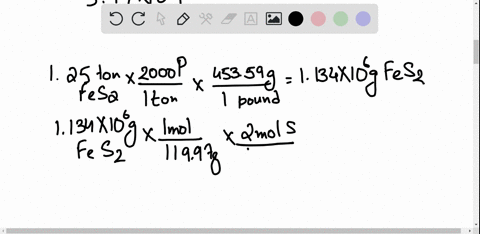 1. 25 ton FeS2 × 2000P / 1 ton × 453.59g / 1 pound = 1.134X10^6 g FeS2
1.134X10^6 g FeS2 × 1mol / 119.97g × 2mol S